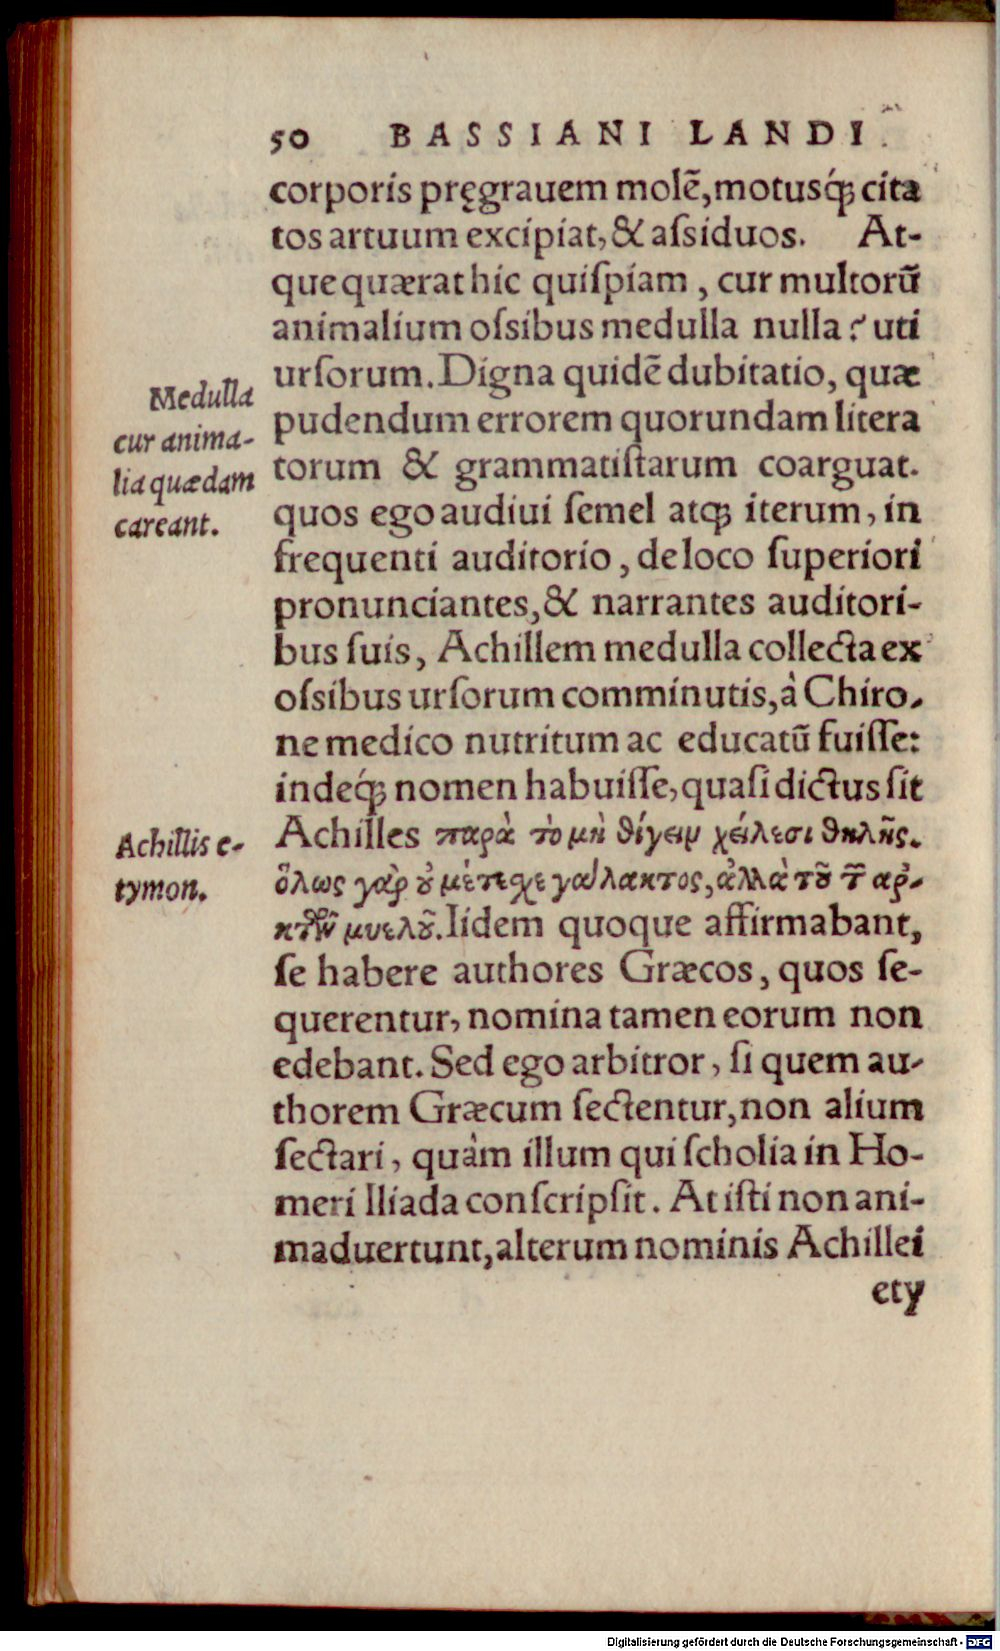 50 BASSIANI LANDI
corporis pręgrauem molẽ, motusq́; cita
tos artuum excipiat, & aſsiduos. At-
que quærat hic quiſpiam, cur multorũ
animalium oſsibus medulla nulla? uti
urſorum. Digna quidẽ dubitatio, quæ
pudendum errorem quorundam litera
torum & grammatiſtarum coarguat.
quos ego audiui ſemel atq; iterum, in
frequenti auditorio, de loco ſuperiori
pronunciantes, & narrantes auditori-
bus ſuis, Achillem medulla collecta ex
oſsibus urſorum comminutis, à Chiro-
ne medico nutritum ac educatũ fuiſſe:
indeq́; nomen habuiſſe, quaſi dictus ſit
Achilles παρὰ τὸ μὴ θίγειν χείλεσι θηλῆς.
ὅλως γὰρ οὐ μέτεχε γάλακτος, ἀλλὰ τοῦ τ̃ ἀρ-
κτῶν μυελοῦ. Iidem quoque affirmabant,
ſe habere authores Græcos, quos ſe-
querentur, nomina tamen eorum non
edebant. Sed ego arbitror, ſi quem au-
thorem Græcum ſectentur, non alium
ſectari, quàm illum qui ſcholia in Ho-
meri Iliada conſcripſit. At iſti non ani-
maduertunt, alterum nominis Achillei
ety
Medulla
cur anima-
lia quædam
careant.
Achillis e-
tymon.
Digitalisierung gefördert durch die Deutsche Forschungsgemeinschaft - DFG